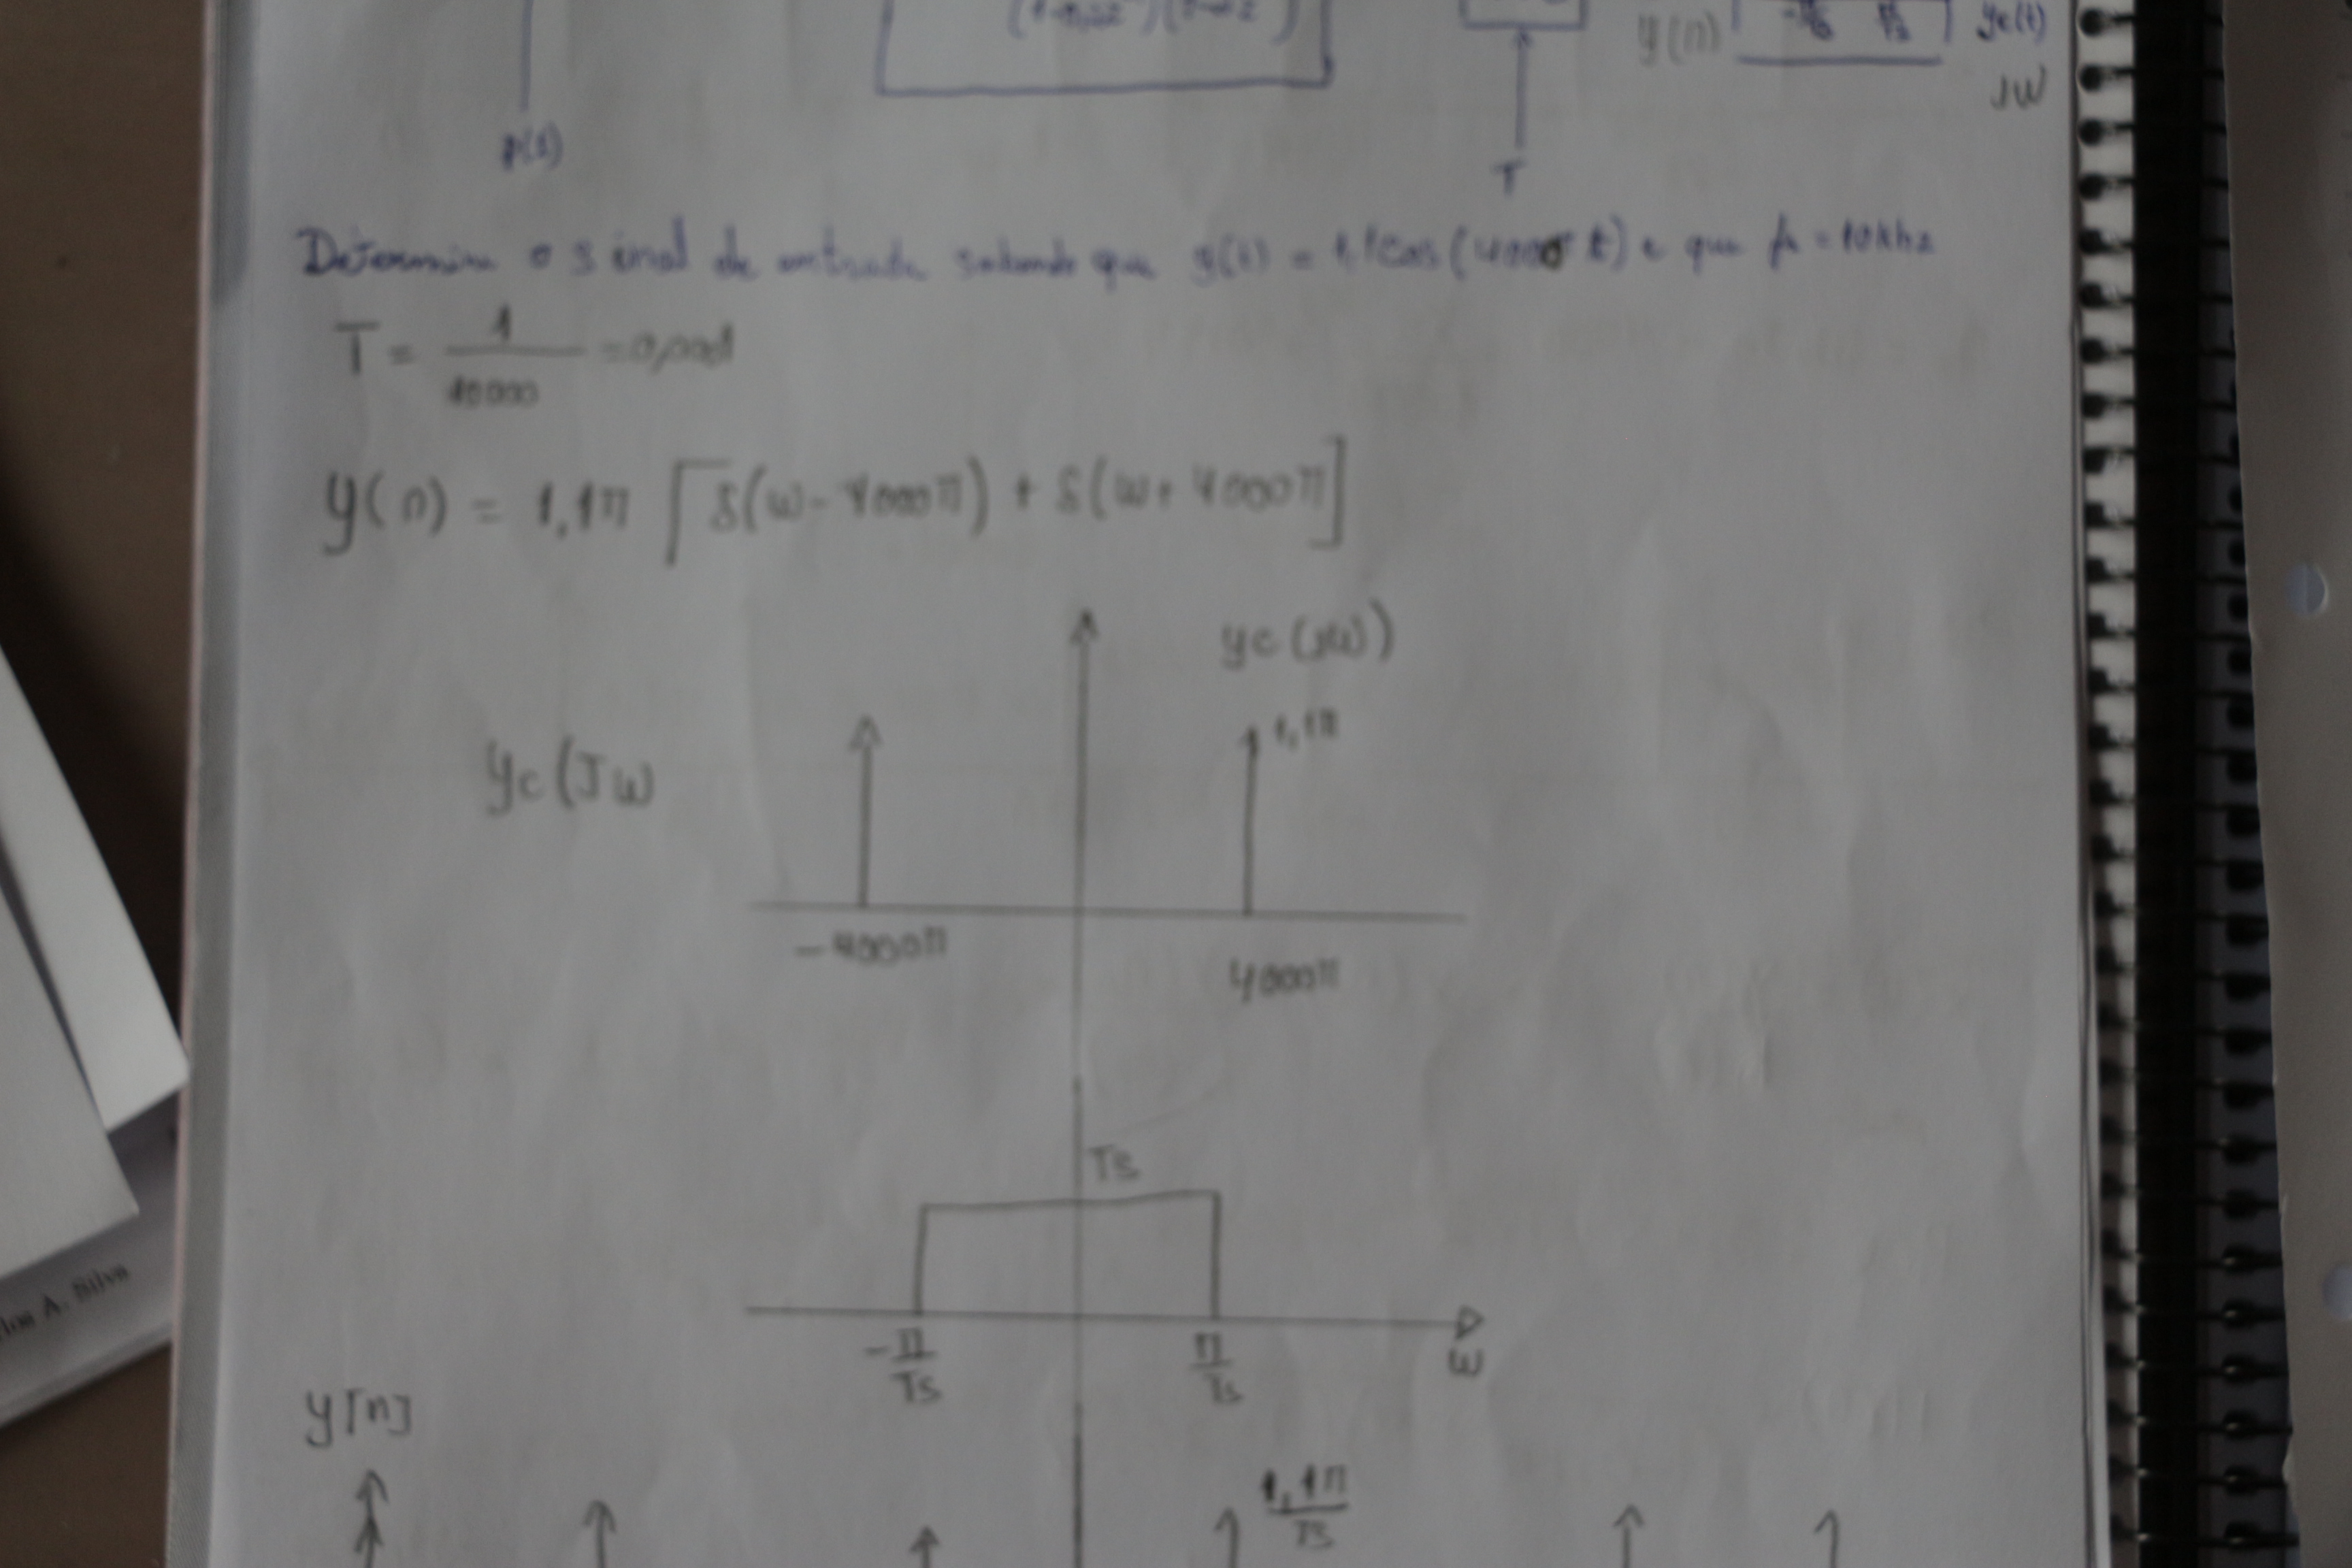 y(n) yc(t)
JW
p(t)
T
Determine o sinal de entrada sabendo que y(t) = 1,1cos(4000π t) e que fs = 10khz
T = 1/10000 = 0,0001
y(n) = 1,1π [δ(ω - 4000π) + δ(ω + 4000π]
yc(jω)
1,1π
yc(Jω
-4000π 4000π
Ts
-π/Ts π/Ts ω
y[n]
1,1π/Ts
los A. Silva